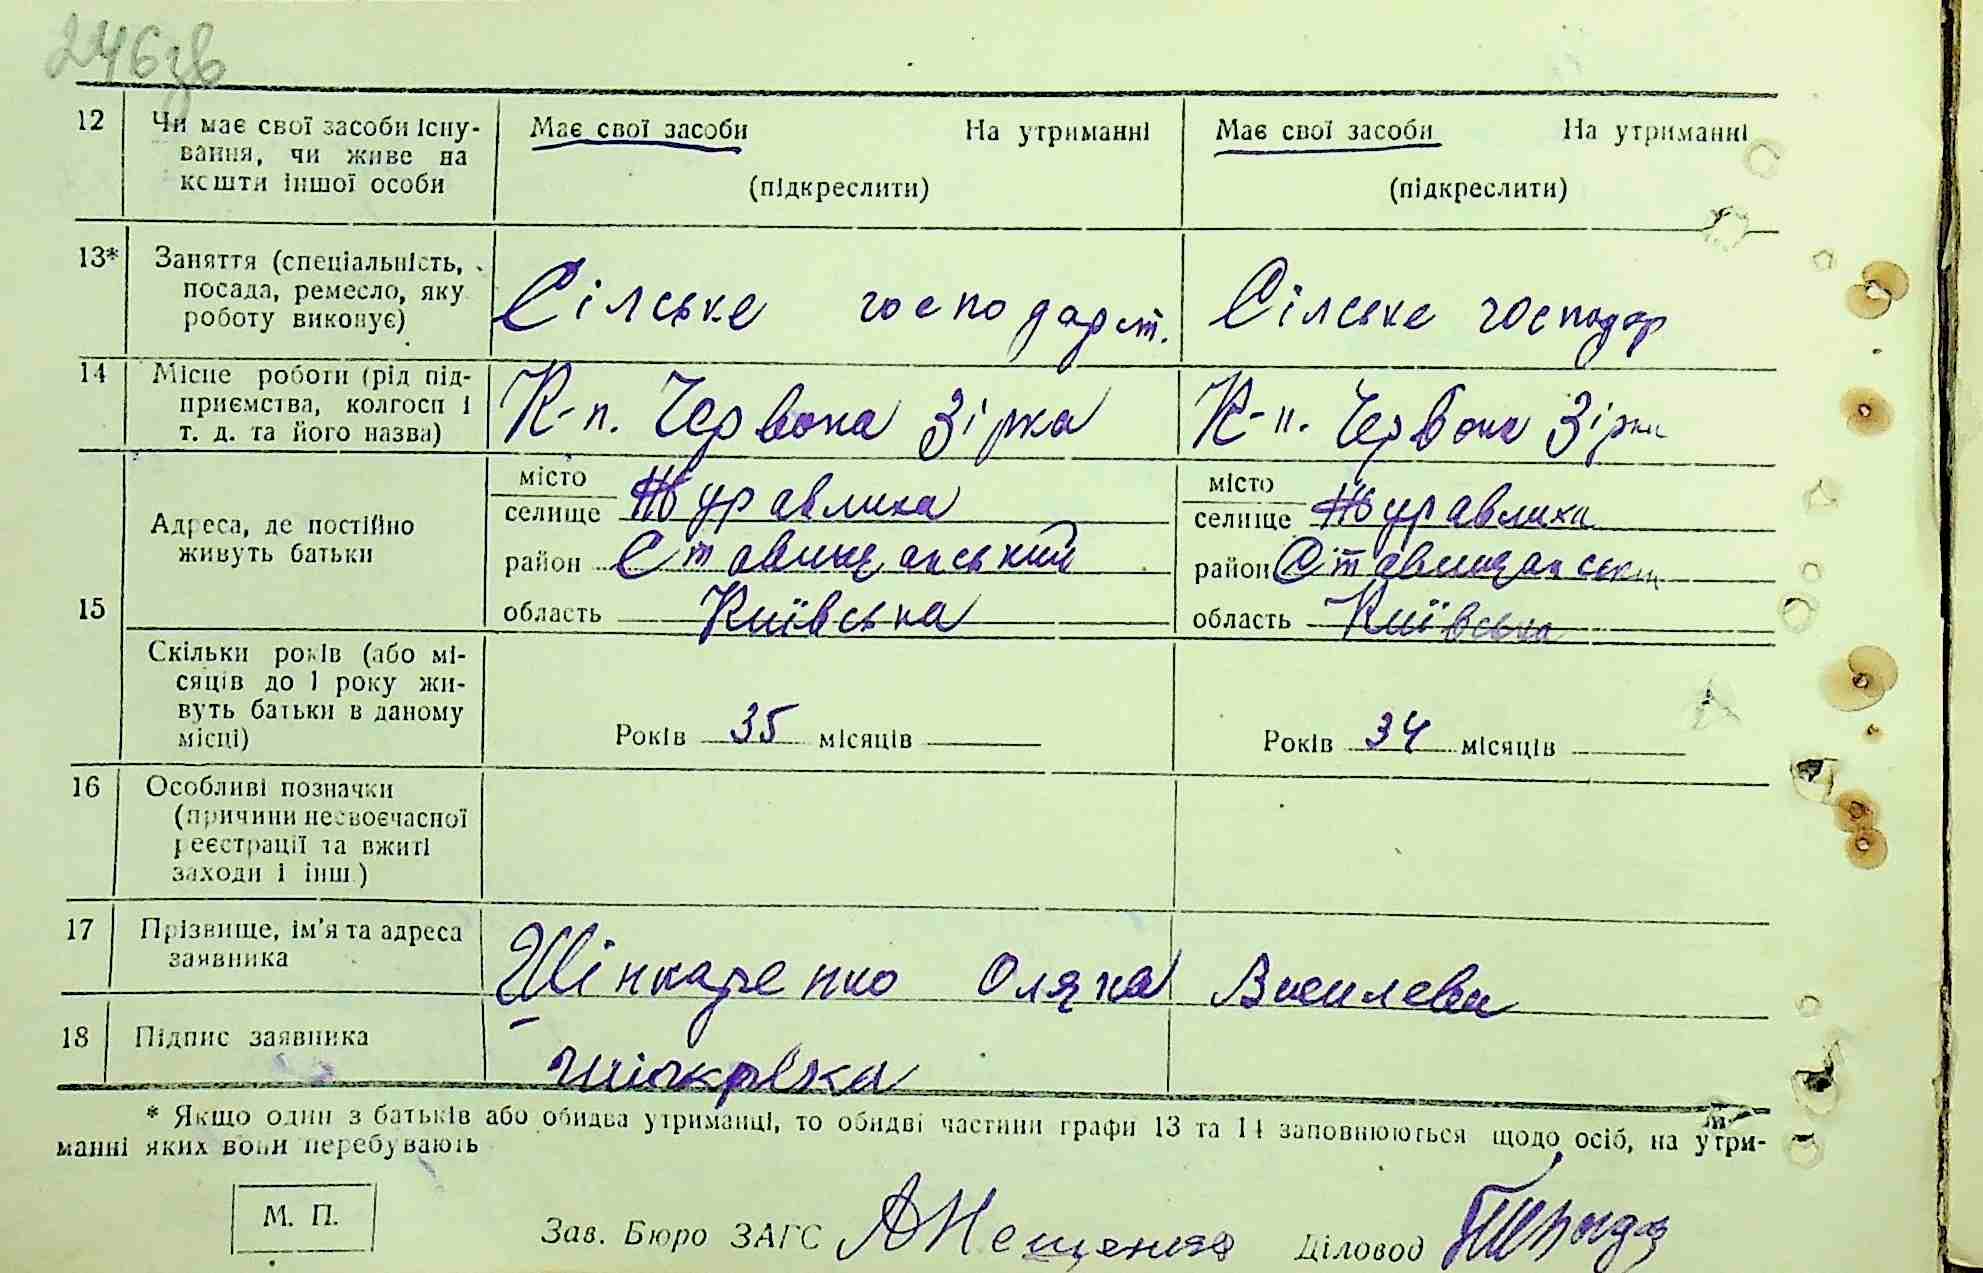 246зв
12 Чи має свої засоби існу- Має свої засоби На утриманні Має свої засоби На утриманні
вання, чи живе на
кошти іншої особи (підкреслити) (підкреслити)
13* Заняття (спеціальність,
посада, ремесло, яку Сілське господарст. Сілське господар
роботу виконує)
14 Місце роботи (рід під-
приємства, колгосп і К-п. Червона Зірка К-п. Червона Зірка
т. д. та його назва)
місто місто
селище Журавлиха селище Журавлиха
Адреса, де постійно
живуть батьки район Ставищанський район Ставищанськ
15 область Київська область Київська
Скільки років (або мі-
сяців до 1 року жи-
вуть батьки в даному
місці) Років 35 місяців Років 34 місяців
16 Особливі позначки
(причини несвоєчасної
реєстрації та вжиті
заходи і інш.)
17 Прізвище, ім'я та адреса
заявника Шінкаренко Оляна Василевн
18 Підпис заявника
* Якщо один з батьків або обидва утриманці, то обидві частини графи 13 та 14 заповнюються щодо осіб, на утри-
манні яких вони перебувають
М. П. Зав. Бюро ЗАГС Діловод